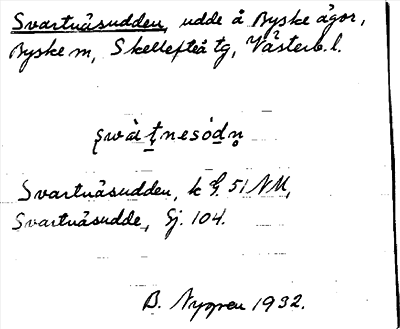 Svartnäsudden, udde å Byske ägor,
Byske sn, Skellefteå tg, Västerb. l.
Svartnäsudden, k G. 51 NM,
Svartnäsudde, Gj. 104.
B. Nygren 1932.